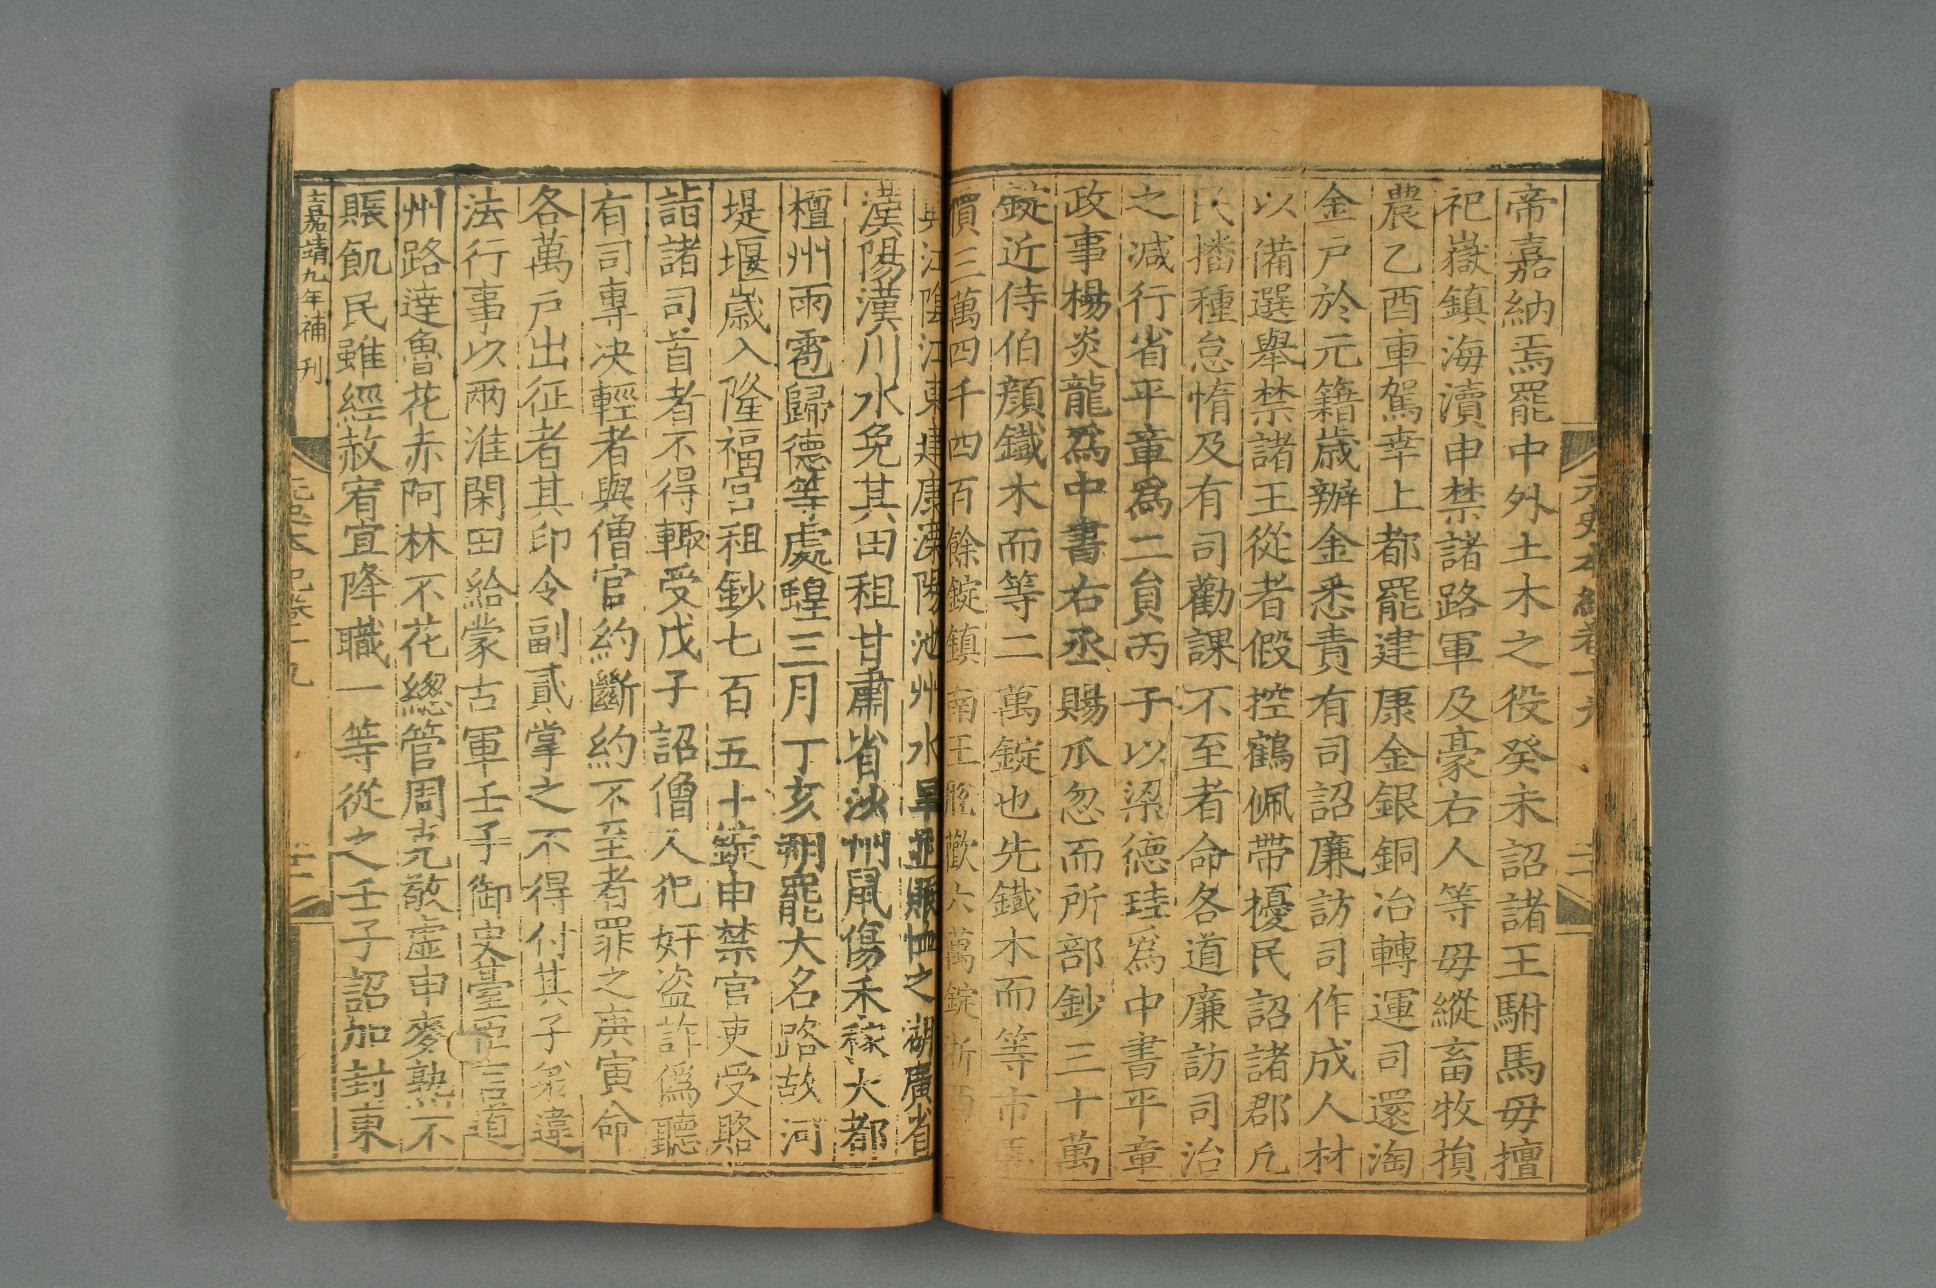 元史本紀卷十九
帝嘉納焉罷中外土木之役癸未詔諸王駙馬毋擅
祀嶽鎮海瀆申禁諸路軍及豪右人等毋縱畜牧損
農乙酉車駕幸上都罷建康金銀銅冶轉運司還淘
金戶於元籍歲辦金悉責有司詔廉訪司作成人材
以備選舉禁諸王從者假控鶴佩帶擾民詔諸郡凡
民播種怠惰及有司勸課不至者命各道廉訪司治
之減行省平章為二員丙子以梁德珪為中書平章
政事楊炎龍為中書右丞賜瓜忽而所部鈔三十萬
錠近侍伯顔鐵木而等二萬錠也先鐵木而等市馬
價三萬四千四百餘錠鎮南王脫歡六萬錠浙西
江陰江東建康溧陽池州水旱並賑恤之湖廣省
漢陽漢川水免其田租甘肅省沙州鼠傷禾稼大都
檀州雨雹歸德等處蝗三月丁亥朔罷大名路故河
堤堰歲入隆福宮租鈔七百五十錠申禁官吏受賂
詣諸司首者不得輒受戊子詔僧人犯奸盗詐僞聽
有司專决輕者與僧官約斷約不至者罪之庚寅命
各萬戶出征者其印令副貳掌之不得付其子弟違
法行事以兩淮閑田給蒙古軍壬子御史臺臣言道
州路達魯花赤阿林不花緫管周克敬虛申麥熟不
賑飢民雖經赦宥宜降職一等從之壬子詔加封東
嘉靖九年補刊
元史本紀卷十九